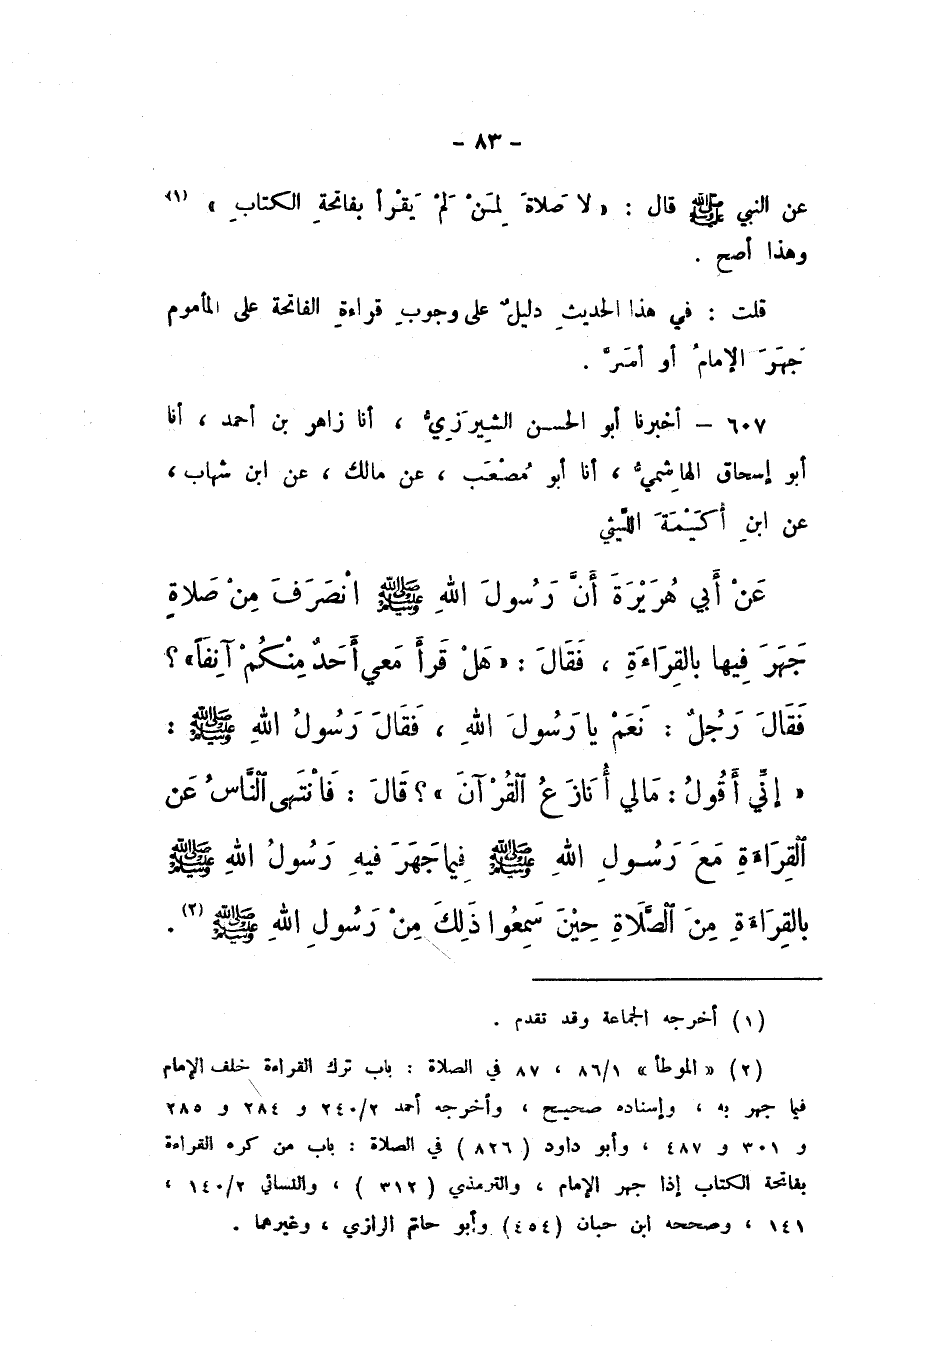 - ٨٣ -
عن النبي ﷺ قال : « لا صَلاةَ لِمَنْ لَمْ يَقْرأ بفاتحةِ الكتابِ » (١)
وهذا أصح .
قلت : في هذا الحديثِ دليلٌ على وجوبِ قراءةِ الفاتحة على المأموم
جَهَرَ الإمامُ أو أسَرَّ .
٦٠٧ – أخبرنا أبو الحسن الشِيرَزِيُّ ، أنا زاهر بن أحمد ، أنا
أبو إسحاق الهاشِميُّ ، أنا أبو مُصْعَب ، عن مالك ، عن ابن شهاب ،
عن ابنِ أُكَيْمَةَ اللَّيثي
عَنْ أَبي هُرَيْرَةَ أَنَّ رَسُولَ اللهِ ﷺ انْصَرَفَ مِنْ صَلاةٍ
جَهَرَ فِيها بالقِرَاءَةِ ، فَقَالَ : « هَلْ قَرأَ مَعي أَحَدٌ مِنْكُمْ آنِفَاً » ؟
فَقَالَ رَجُلٌ : نَعَمْ يا رَسُولَ اللهِ ، فَقَالَ رَسُولُ اللهِ ﷺ :
« إنِّي أَقُولُ : مَالي أُنَازَعُ القُرْآنَ » ؟ قَالَ : فَانْتَهى النَّاسُ عَن
القِرَاءَةِ مَعَ رَسُولِ اللهِ ﷺ فِيما جَهَرَ فيهِ رَسُولُ اللهِ ﷺ
بالقِرَاءَةِ مِنَ الصَّلَاةِ حِيْنَ سَمِعُوا ذَلِكَ مِنْ رَسُولِ اللهِ ﷺ (٢) .
(١) أخرجه الجماعة وقد تقدم .
(٢) « الموطأ » ٨٦/١ ، ٨٧ في الصلاة : باب ترك القراءة خلف الإمام
فيما جهر به ، وإسناده صحيح ، وأخرجه أحمد ٢٤٠/٢ و ٢٨٤ و ٢٨٥
و ٣٠١ و ٤٨٧ ، وأبو داود ( ٨٢٦ ) في الصلاة : باب من كره القراءة
بفاتحة الكتاب إذا جهر الإمام ، والترمذي ( ٣١٢ ) ، والنسائي ١٤٠/٢ ،
١٤١ ، وصححه ابن حبان (٤٥٤) وأبو حاتم الرازي ، وغيرهما .